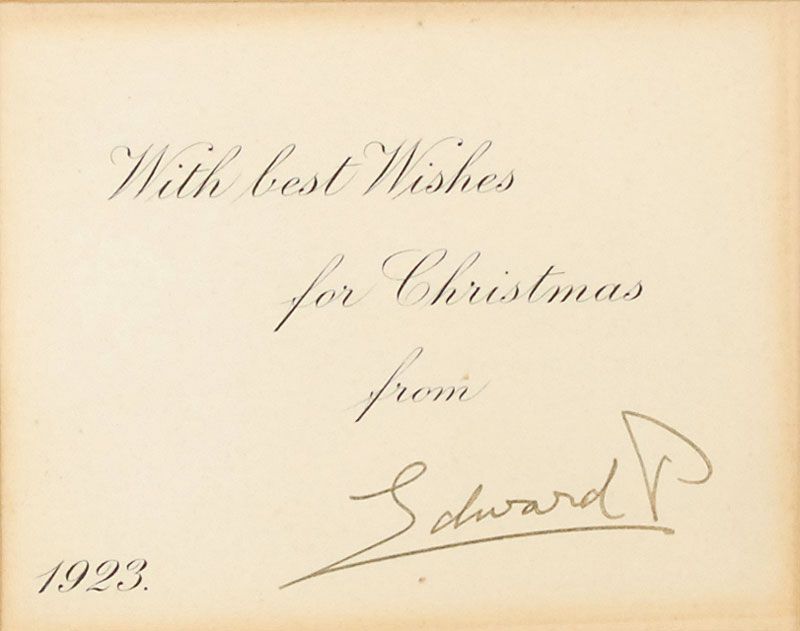 With best Wishes
for Christmas
from
Edward P
1923.